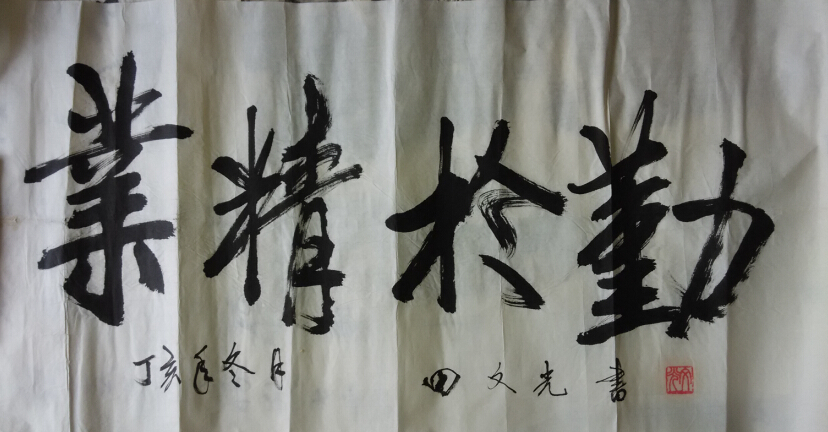 業精於勤
丁亥年冬月 田文光書